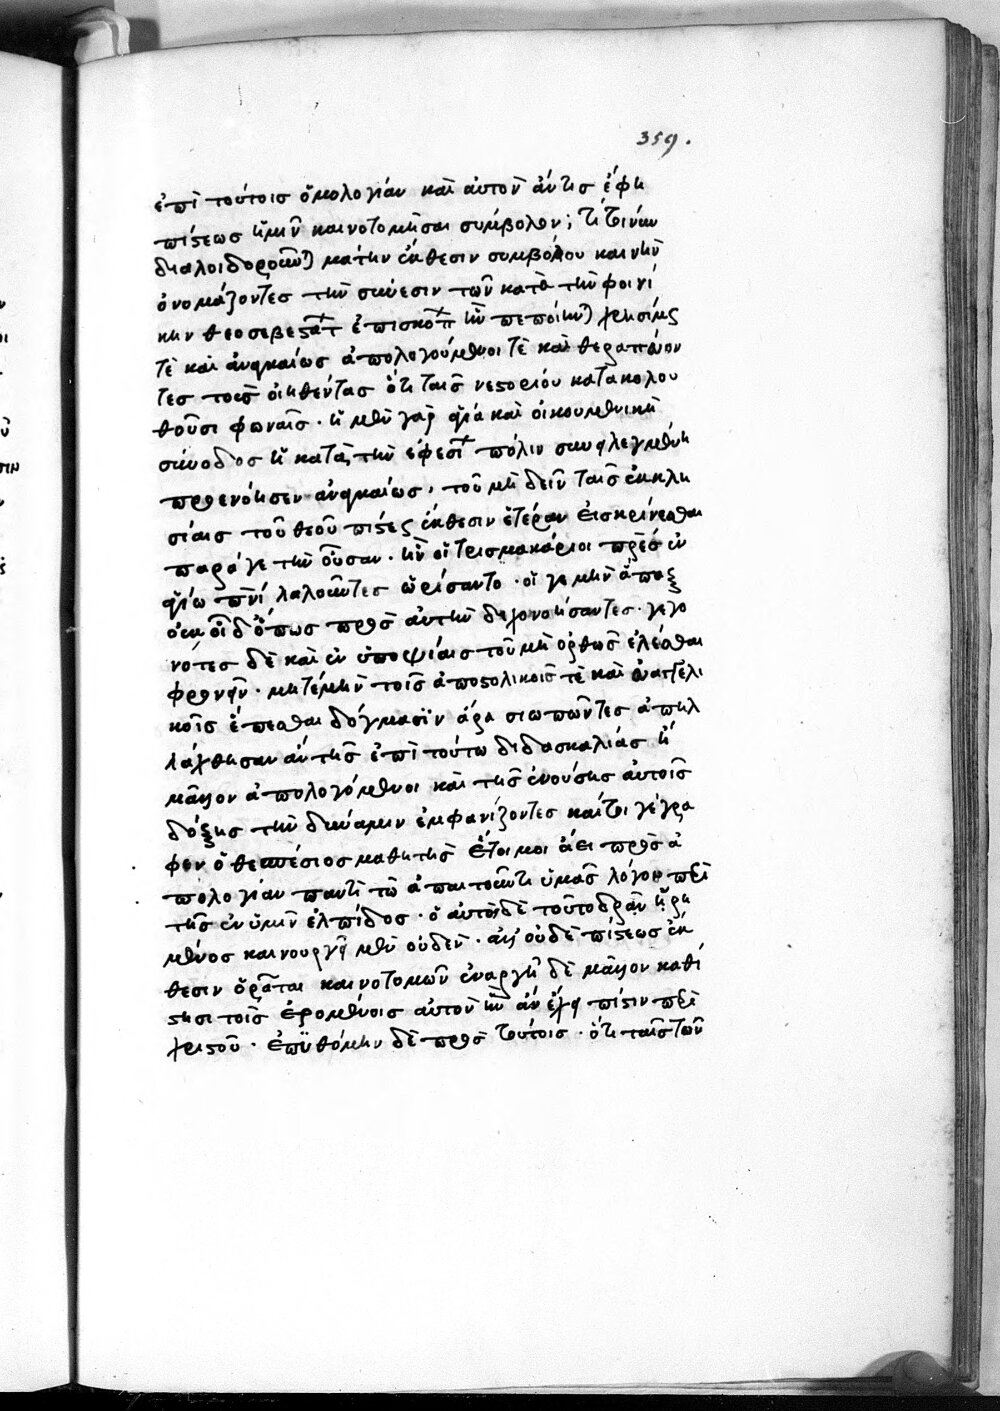 359.
ἐπὶ τούτοισ ὁμολογίαν καὶ αὐτὸν ἄντισ ἔφη
πίστεωσ ἡμῖν καινοτομῆσαι σύμβολον; τί τινὲσ
διαλοιδοροῦν) μάτην ἔκθεσιν συμβόλου καινὴν
ὀνομάζοντεσ τὴν σύνεσιν τῶν κατὰ τὴν φοινί
κην θεοσεβεστάτ ἐπισκόπ ἣν πεποίην) χρησίμως
τὲ καὶ ἀναγκαίωσ ἀπολογούμενοι τὲ καὶ θεραπεύον
τεσ τοὺσ οἰηθέντασ ὅτι ταῖσ νεστορίου κατακολου
θοῦσι φωναῖσ. ἡ μὲν γὰρ ἁγία καὶ οἰκουμενικὴ
σύνοδοσ ἡ κατὰ τὴν ἐφεσί πόλιν συνειλεγμένη
προενόησεν ἀναγκαίωσ, τοῦ μὴ δεῖν ταῖσ ἐκκλη
σίαισ τοῦ θεοῦ πίστεως ἔκθεσιν ἑτέραν εἰσκρίνεσθαι
παρά γε τὴν οὖσαν. ἣν οἱ τρισμακάριοι πρέσ ἐν
ἁγίω πνί λαλοῦντεσ ὡρίσαντο. οἵ γε μὴν ἅπαξ
οὐκ οἶδ ὅπωσ πρὸσ αὐτὴν διχονοήσαντεσ. γεγο
νότεσ δὲ καὶ ἐν ὑποψίαισ τοῦ μὴ ὀρθῶσ ἑλέσθαι
φρονεῖν. μήτε μὴν τοῖσ ἀποστολικοῖσ τὲ καὶ εὐαγγελι
κοῖσ ἕπεσθαι δόγμασϊν ἆρα σιωπῶντεσ ἀπηλ
λάχθησαν ἂν τῆσ ἐπὶ τούτω διδασκαλίασ ἢ
μᾶλλον ἀπολογόμενοι καὶ τῆσ ἐνούσησ αὐτοῖσ
δόξησ τὴν δύναμιν ἐμφανίζοντεσ καίτοι γέγρα
φεν ὁ θεσπέσιοσ μαθητὴσ ἕτοιμοι ἀεὶ πρὸσ ἀ
πολογίαν παντὶ τῶ ἀπαιτοῦντι ὑμᾶσ λόγον περὶ
τῆσ ἐν ὑμῖν ἐλπίδοσ. ὁ αὐτὸσ δὲ τοῦτο δρᾶν ἡρη
μένοσ καινουργεῖ μὲν οὐδέν. ἀλλ' οὐδὲ πίστεωσ ἔκ
θεσιν ὁρᾶται καινοτομῶν ἐναργῆ δὲ μᾶλλον καθί
στησι τοῖσ ἐρομένοισ αὐτὸν ἣν ἂν ἔχοι πίστιν περὶ
χριστοῦ. ἐπϋθόμην δὲ πρὸσ τούτοισ. ὅτι ταῖσ τῶν